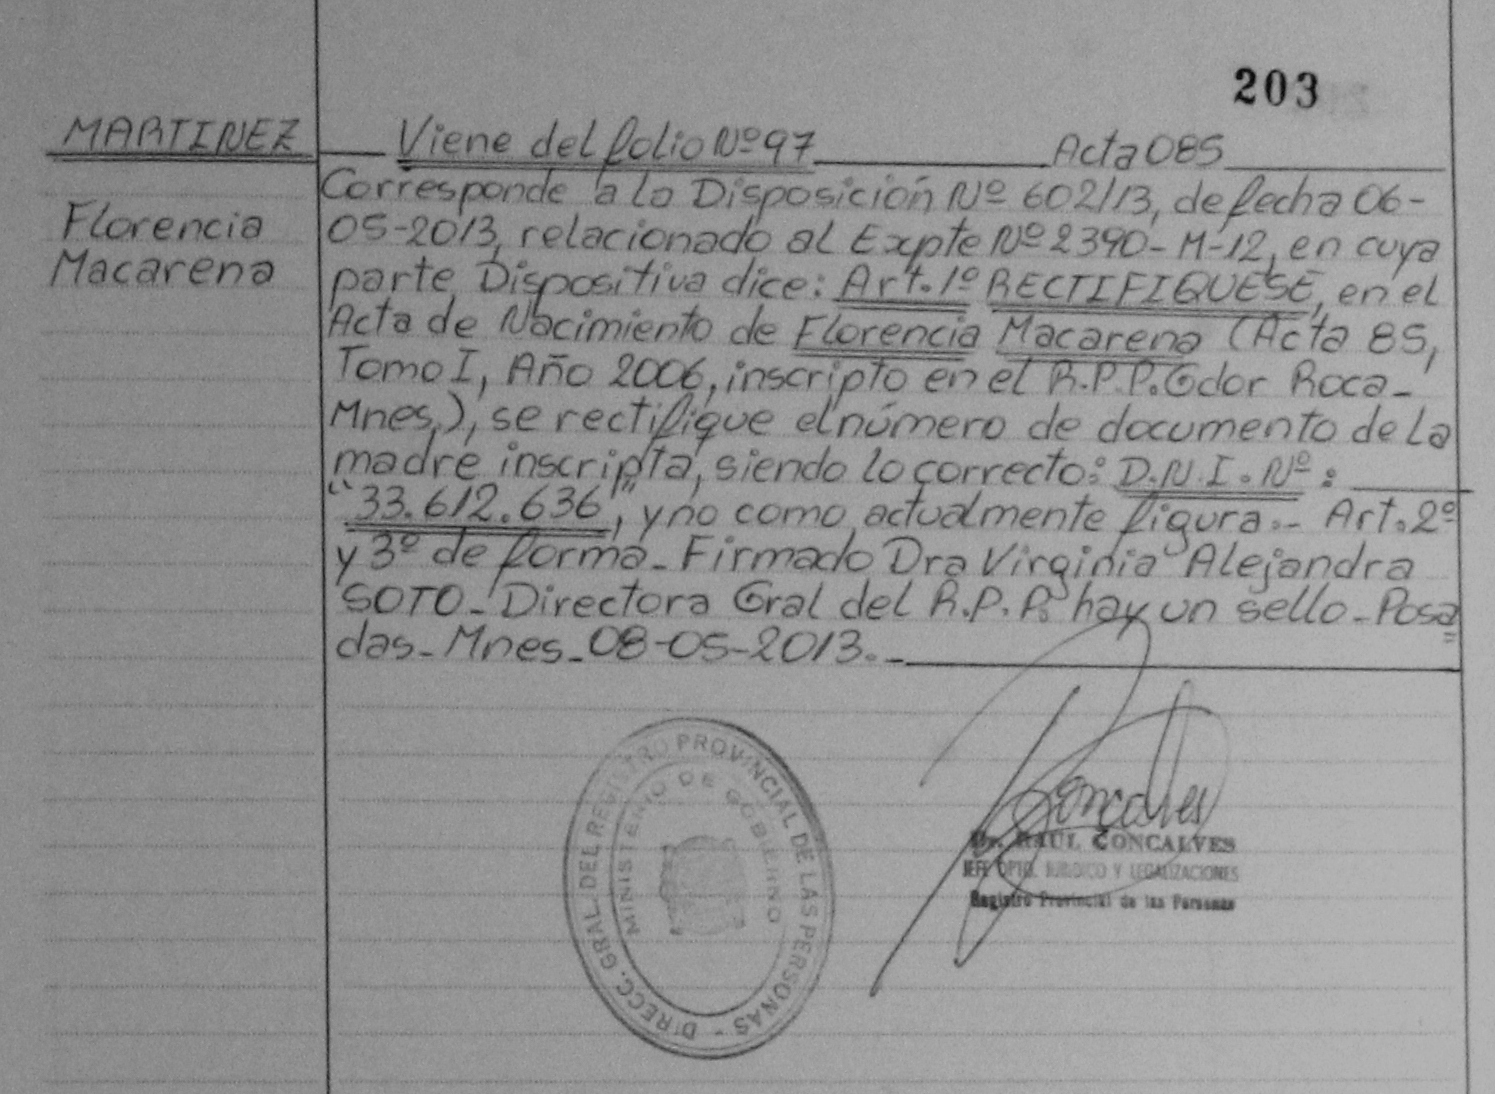 203
MARTINEZ
Florencia
Macarena
Viene del folio Nº 97 Acta 085
Corresponde a la Disposición Nº 602/13, de fecha 06-
05-2013, relacionado al Expte Nº 2390-M-12, en cuya
parte Dispositiva dice: Art. 1º RECTIFIQUESE, en el
Acta de Nacimiento de Florencia Macarena (Acta 85,
Tomo I, Año 2006, inscripto en el R.P.P. Gdor Roca-
Mnes,), se rectifique el número de documento de la
madre inscripta, siendo lo correcto: D.N.I. Nº:
"33.612.636", y no como actualmente figura.- Art. 2º
y 3º de forma- Firmado Dra Virginia Alejandra
SOTO- Directora Gral del R.P.P. hay un sello- Posa
das- Mnes- 08-05-2013.-
DIRECC. GRAL. DEL REGISTRO PROVINCIAL DE LAS PERSONAS -
MINISTERIO DE GOBIERNO
Goncalves
Dr. RAUL GONCALVES
JEFE DPTO. JURIDICO Y LEGALIZACIONES
Registro Provincial de las Personas